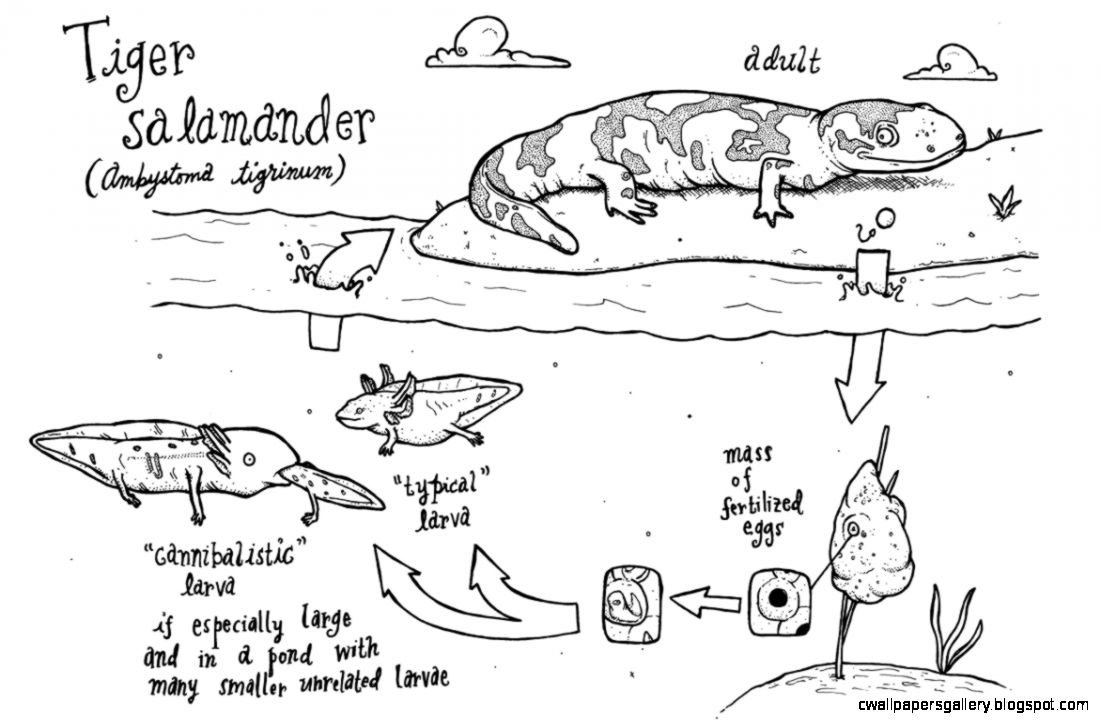 Tiger
salamander
(Ambystoma tigrinum)
adult
mass
of
fertilized
eggs
"typical"
larva
"cannibalistic"
larva
if especially large
and in a pond with
many smaller unrelated larvae
cwallpapersgallery.blogspot.com